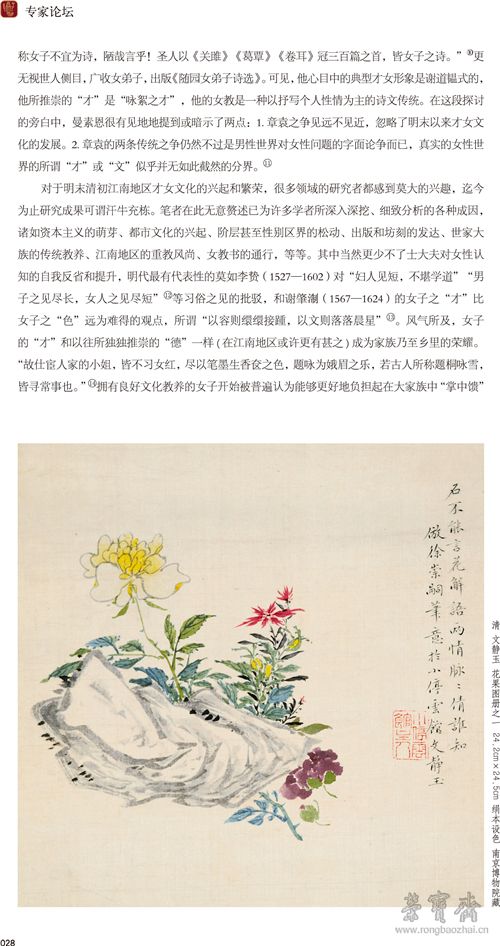 专家论坛
称女子不宜为诗，陋哉言乎！圣人以《关雎》《葛覃》《卷耳》冠三百篇之首，皆女子之诗。”⑩更
无视世人侧目，广收女弟子，出版《随园女弟子诗选》。可见，他心目中的典型才女形象是谢道韫式的，
他所推崇的“才”是“咏絮之才”，他的女教是一种以抒写个人性情为主的诗文传统。在这段探讨
的旁白中，曼素恩很有见地地提到或暗示了两点：1. 章袁之争见远不见近，忽略了明末以来才女文
化的发展。2. 章袁的两条传统之争仍然不过是男性世界对女性问题的字面论争而已，真实的女性世
界的所谓“才”或“文”似乎并无如此截然的分界。⑪
对于明末清初江南地区才女文化的兴起和繁荣，很多领域的研究者都感到莫大的兴趣，迄今
为止研究成果可谓汗牛充栋。笔者在此无意赘述已为许多学者所深入深挖、细致分析的各种成因，
诸如资本主义的萌芽、都市文化的兴起、阶层甚至性别区界的松动、出版和坊刻的发达、世家大
族的传统教养、江南地区的重教风尚、女教书的通行，等等。其中当然更少不了士大夫对女性认
知的自我反省和提升，明代最有代表性的莫如李贽（1527—1602）对“妇人见短，不堪学道”“男
子之见尽长，女人之见尽短”⑫等习俗之见的批驳，和谢肇淛（1567—1624）的女子之“才”比
女子之“色”远为难得的观点，所谓“以容则缳缳接踵，以文则落落晨星”⑬。风气所及，女子
的“才”和以往所独独推崇的“德”一样（在江南地区或许更有甚之）成为家族乃至乡里的荣耀。
“故仕宦人家的小姐，皆不习女红，尽以笔墨生香奁之色，题咏为娥眉之乐，若古人所称题桐咏雪，
皆寻常事也。”⑭拥有良好文化教养的女子开始被普遍认为能够更好地负担起在大家族中“掌中馈”
石不能言花解语两情脉〻倩谁知
倣徐崇嗣笔意於小停雲馆文静玉
清 文静玉 花果图册之一 24.2cm×24.5cm 绢本设色 南京博物院藏
榮寶齋
www.rongbaozhai.cn
028